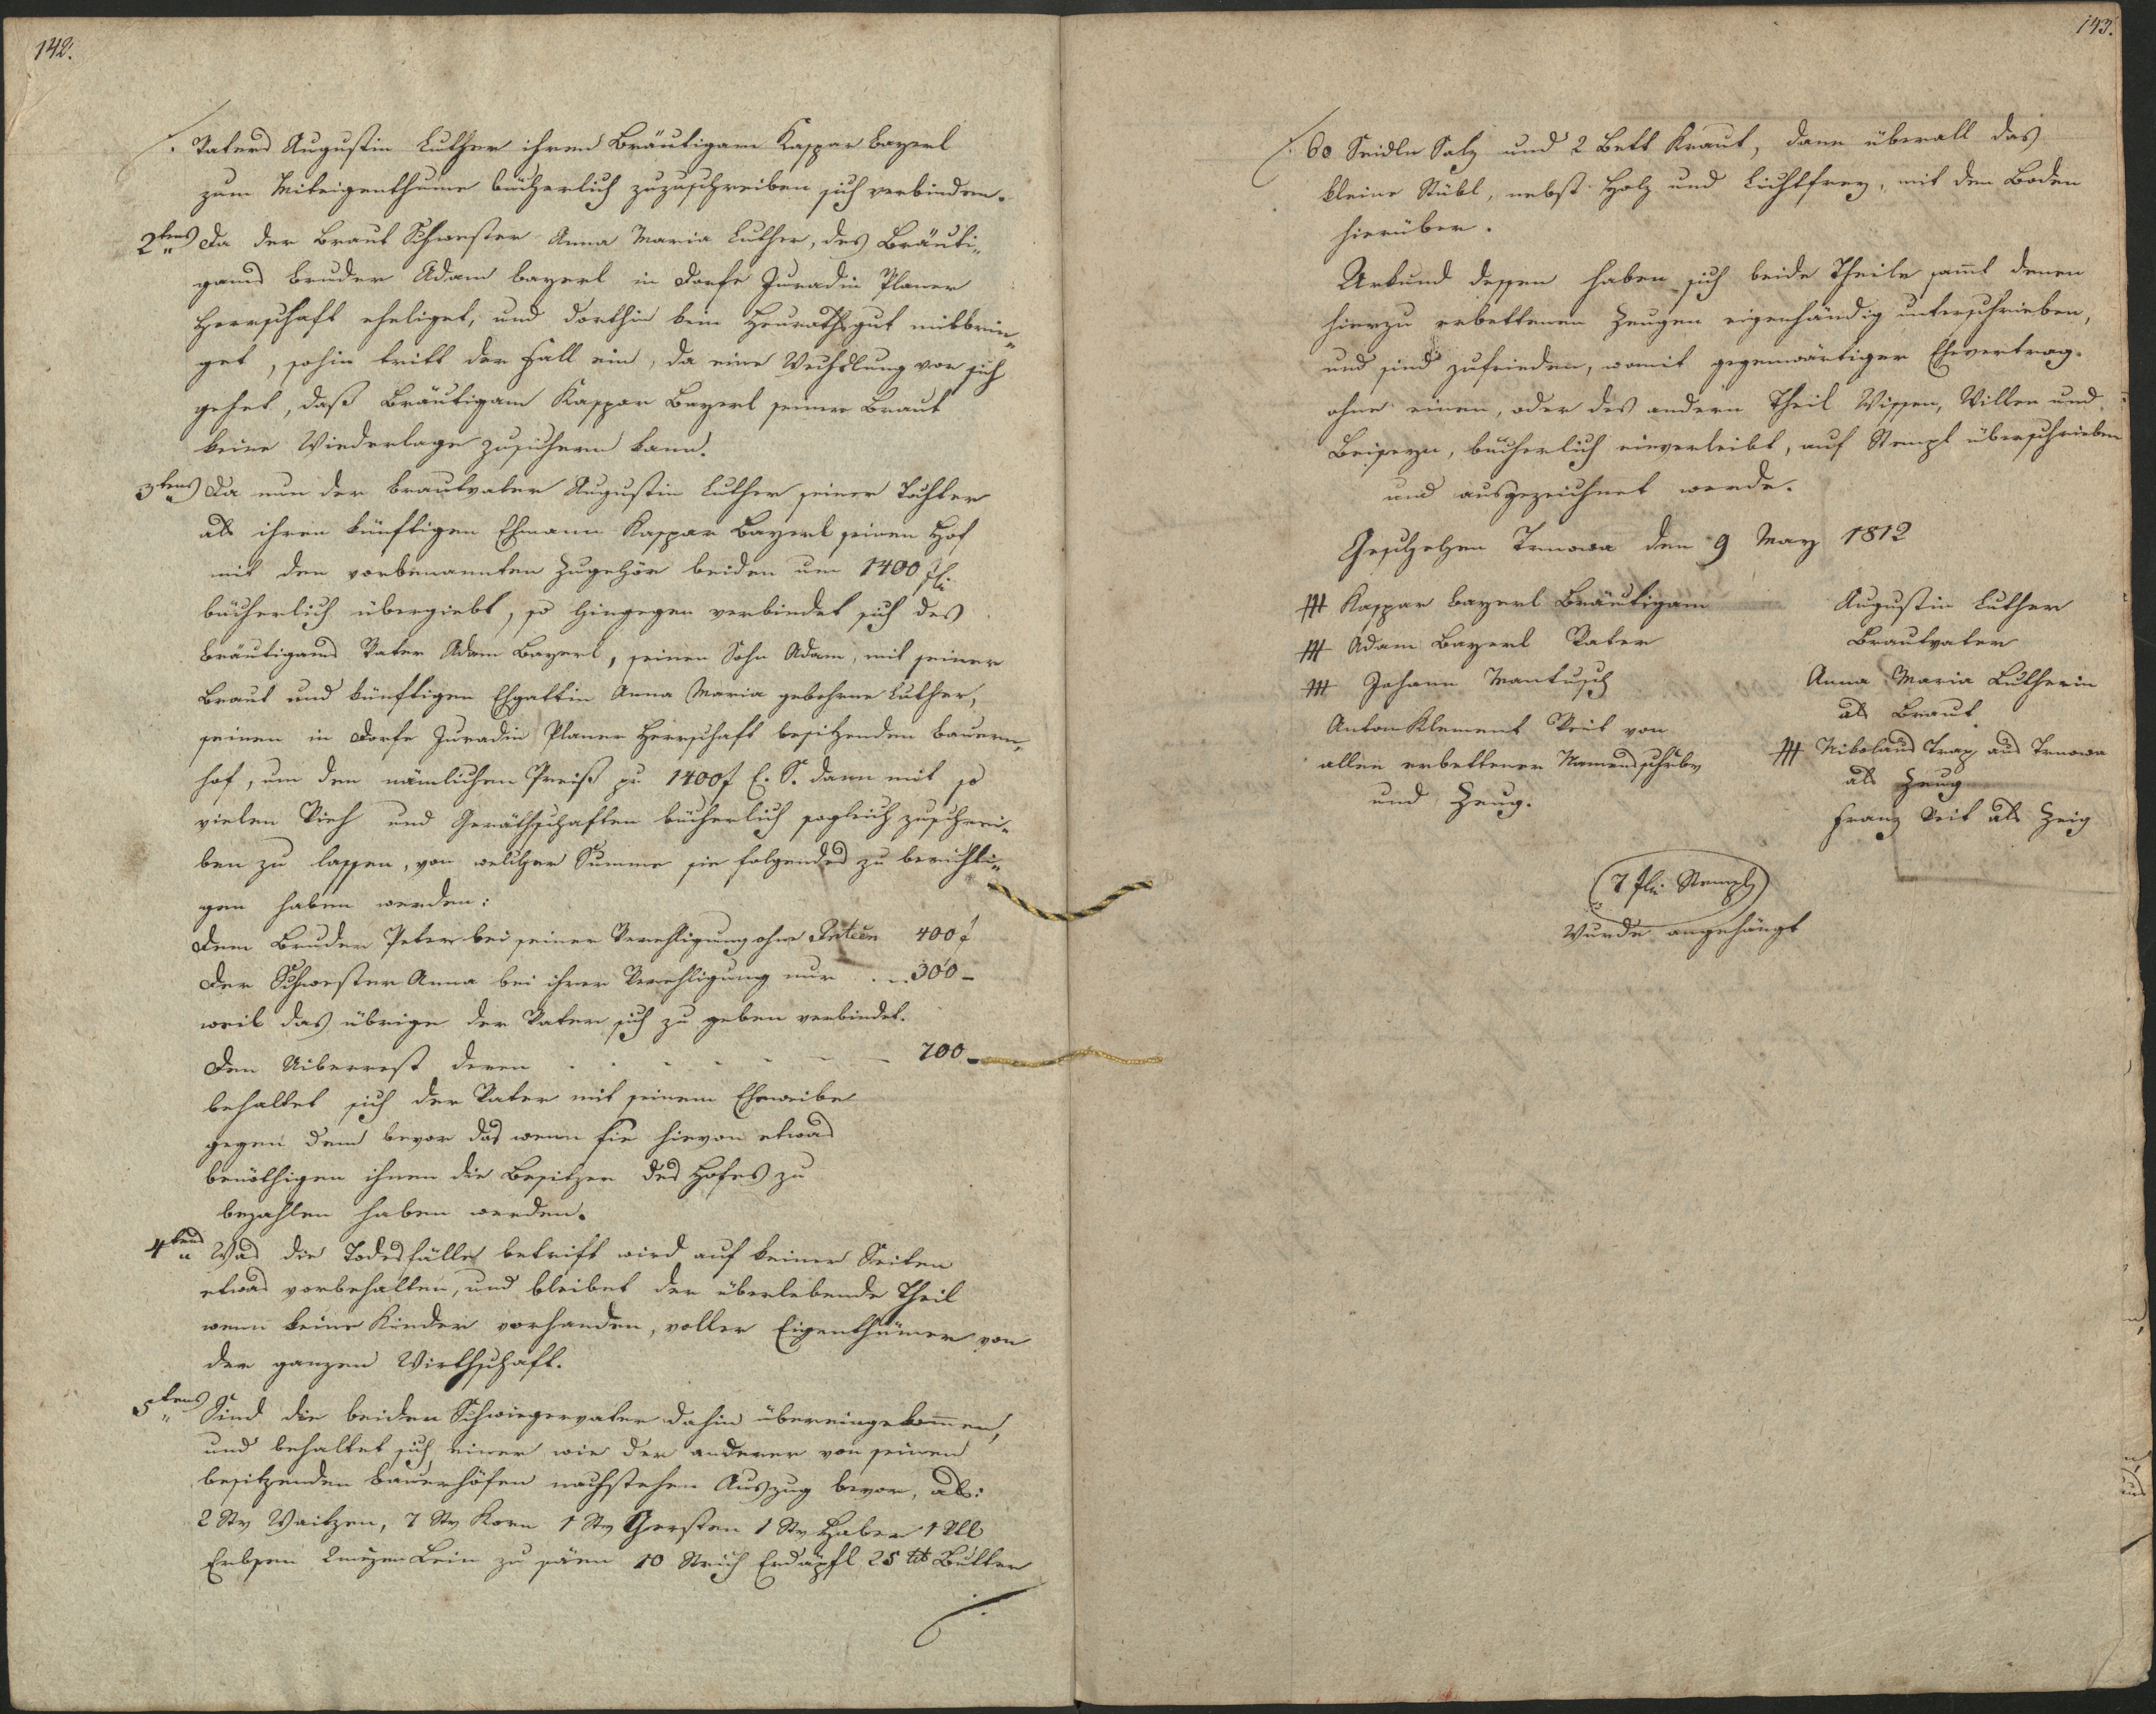 142.
Vaters Augustin Luther ihrem Bräutigam Kaspar Bayerl
zum Miteigenthume bücherlich zuzuschreiben sich verbinden.
2tens Da der Braut Schwester Anna Maria Luther, des Bräuti„
gams Bruder Adam Bayerl in Dorfe Juradin Planer
Herrschaft eheliget, und dorthin kein Heurathsgut mitbrin„
get, sohin tritt der Fall ein, da eine Wechslung vor sich
gehet, daß Bräutigam Kaspar Bayerl seiner Braut
keine Wiederlage zusichern kann.
3tens Da nun der Brautvater Augustin Luther seiner Tochter
als ihren künftigen Ehmann Kaspar Bayerl seinen Hof
mit den vorbenannten Zugehör beiden um 1400 fl.
bücherlich übergiebt, so hingegen verbindet sich des
Bräutigams Vater Adam Bayerl, seinen Sohn Adam, mit seiner
Braut und künftigen Ehgattin Anna Maria gebohrne Luther,
seinen in Dorfe Juradin Planer Herrschaft besitzenden Bauern„
hof, um den nämlichen Preiß pr 1400 f E. S. dann mit so
vielen Vieh und Geräthschaften bücherlich sogleich zuschrei„
ben zu lassen, von welcher Summe sie folgendes zu berichti„
gen haben werden:
Dem Bruder Peter bei seiner Verehligung ohne 400 f
Der Schwester Anna bei ihrer Verehligung nur . . 300 –
weil das übrige der Vater sich zu geben verbindet.
Den Uiberrest deren . . . . . 700 –
behaltet sich der Vater mit seinem Eheweibe
gegen dem bevor das wenn sie hievon etwas
benöthigen ihnen die Besitzer des Hofes zu
bezahlen haben werden.
4tens Was die Todesfälle betrift wird auf keiner Seiten
etwas vorbehalten, und bleibet der überlebende Theil
wenn keine Kinder vorhanden, voller Eigenthümer von
der ganzen Wirthschaft.
5tens Sind die beiden Schwiegervater dahin übereingekommen,
und behaltet sich einer wie der anderer von seinen
besitzenden Bauerhöfen nachstehen Auszug bevor, als:
2 Str Waitzen, 7 Str Korn 1 Str Gersten 1 Str Haber 1
Erbsen Lein zu säen 10 Strich Erdäpfl 25 ℔ Butter
./.
143.
./. 60 Seidln Salz und 2 Bett Kraut, dann überall das
kleine Stübl, nebst Holz und Lichtfrey, mit dem Boden
hierüber.
Urkund dessen haben sich beide Theile sammt denen
hierzu erbettenen Zeugen eigenhändig unterschrieben,
und sind zufrieden, womit gegenwärtiger Ehevertrag
ohne einen, oder des andern Theil Wissen, Willen und
Beiseyn, bücherlich einverleibt, auf Stempl überschrieben
und ausgezeichnet werde.
Geschehen Trnowa den 9 May 1812
+++ Kaspar Bayerl Bräutigam
+++ Adam Bayerl Vater
+++ Johann Mantusch
Anton Klement Veit von
allen erbettener Namensschrbr
und Zeug.
Augustin Luther
Brautvater
Anna Maria Lutherin
als Braut
+++ Nikolaus Trap aus Trnowa
als Zeug
Franz Veit als Zeig
(7 Stempl)
Wurde angehängt